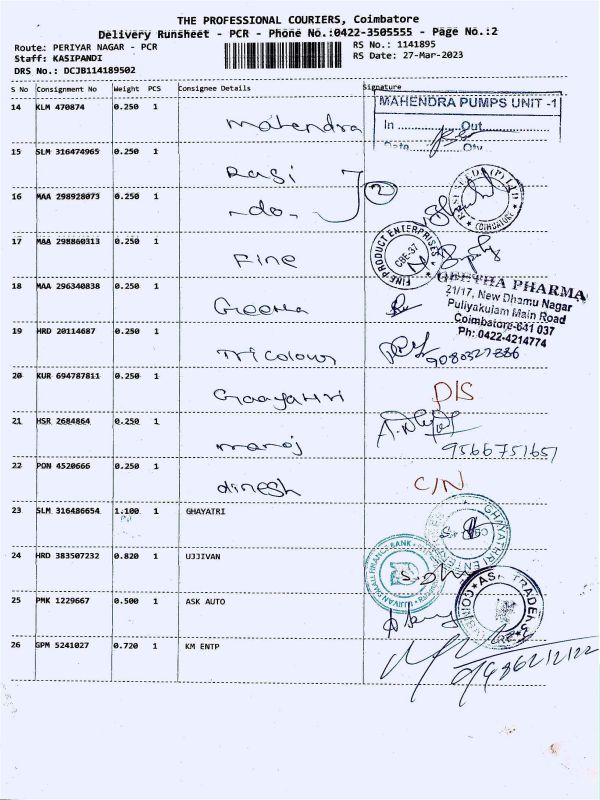 THE PROFESSIONAL COURIERS, Coimbatore
Delivery Runsheet - PCR - Phone No.:0422-3505555 - Page No.:2
Route: PERIYAR NAGAR - PCR
RS No.: 1141895
Staff: KASIPANDI
RS Date: 27-Mar-2023
DRS No.: DCJB114189502
S No Consignment No Weight PCS Consignee Details Signature
14 KLM 470874 0.250 1 Mahendra
MAHENDRA PUMPS UNIT -1
In Out
Date
15 SLM 316474965 0.250 1 Rasi
16 MAA 298928073 0.250 1 -do- 2
COIMBATORE
17 MAA 298860313 0.250 1 Fine
FINE PRODUCT ENTERPRISES
CBE-37
18 MAA 296340838 0.250 1 Geetha
GEETHA PHARMA
21/17, New Dhamu Nagar
Puliyakulam Main Road
Coimbatore-641 037
Ph: 0422-4214774
19 HRD 20114687 0.250 1 Tricolour
9080327886
20 KUR 694787811 0.250 1 Gaayathri D/S
21 HSR 2684864 0.250 1 manoj
9566751657
22 PON 4520666 0.250 1 dinesh C/N
23 SLM 316486654 1.100 1 GHAYATRI
24 HRD 383507232 0.820 1 UJJIVAN
25 PMK 1229667 0.500 1 ASK AUTO
ASK TRADERS
26 GPM 5241027 0.720 1 KM ENTP